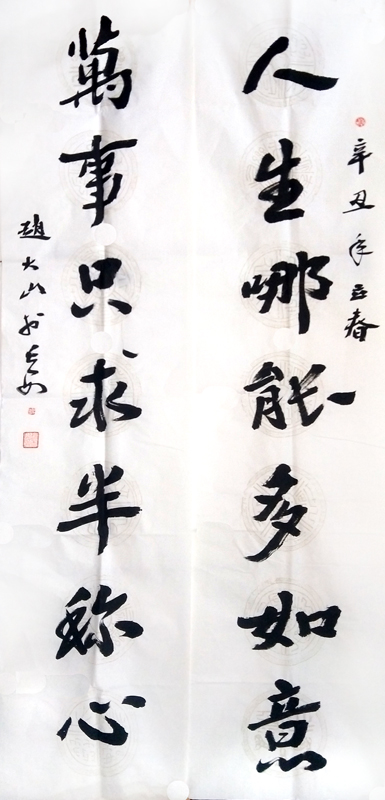 辛丑年立春
人生哪能多如意
萬事只求半称心
趙大山於